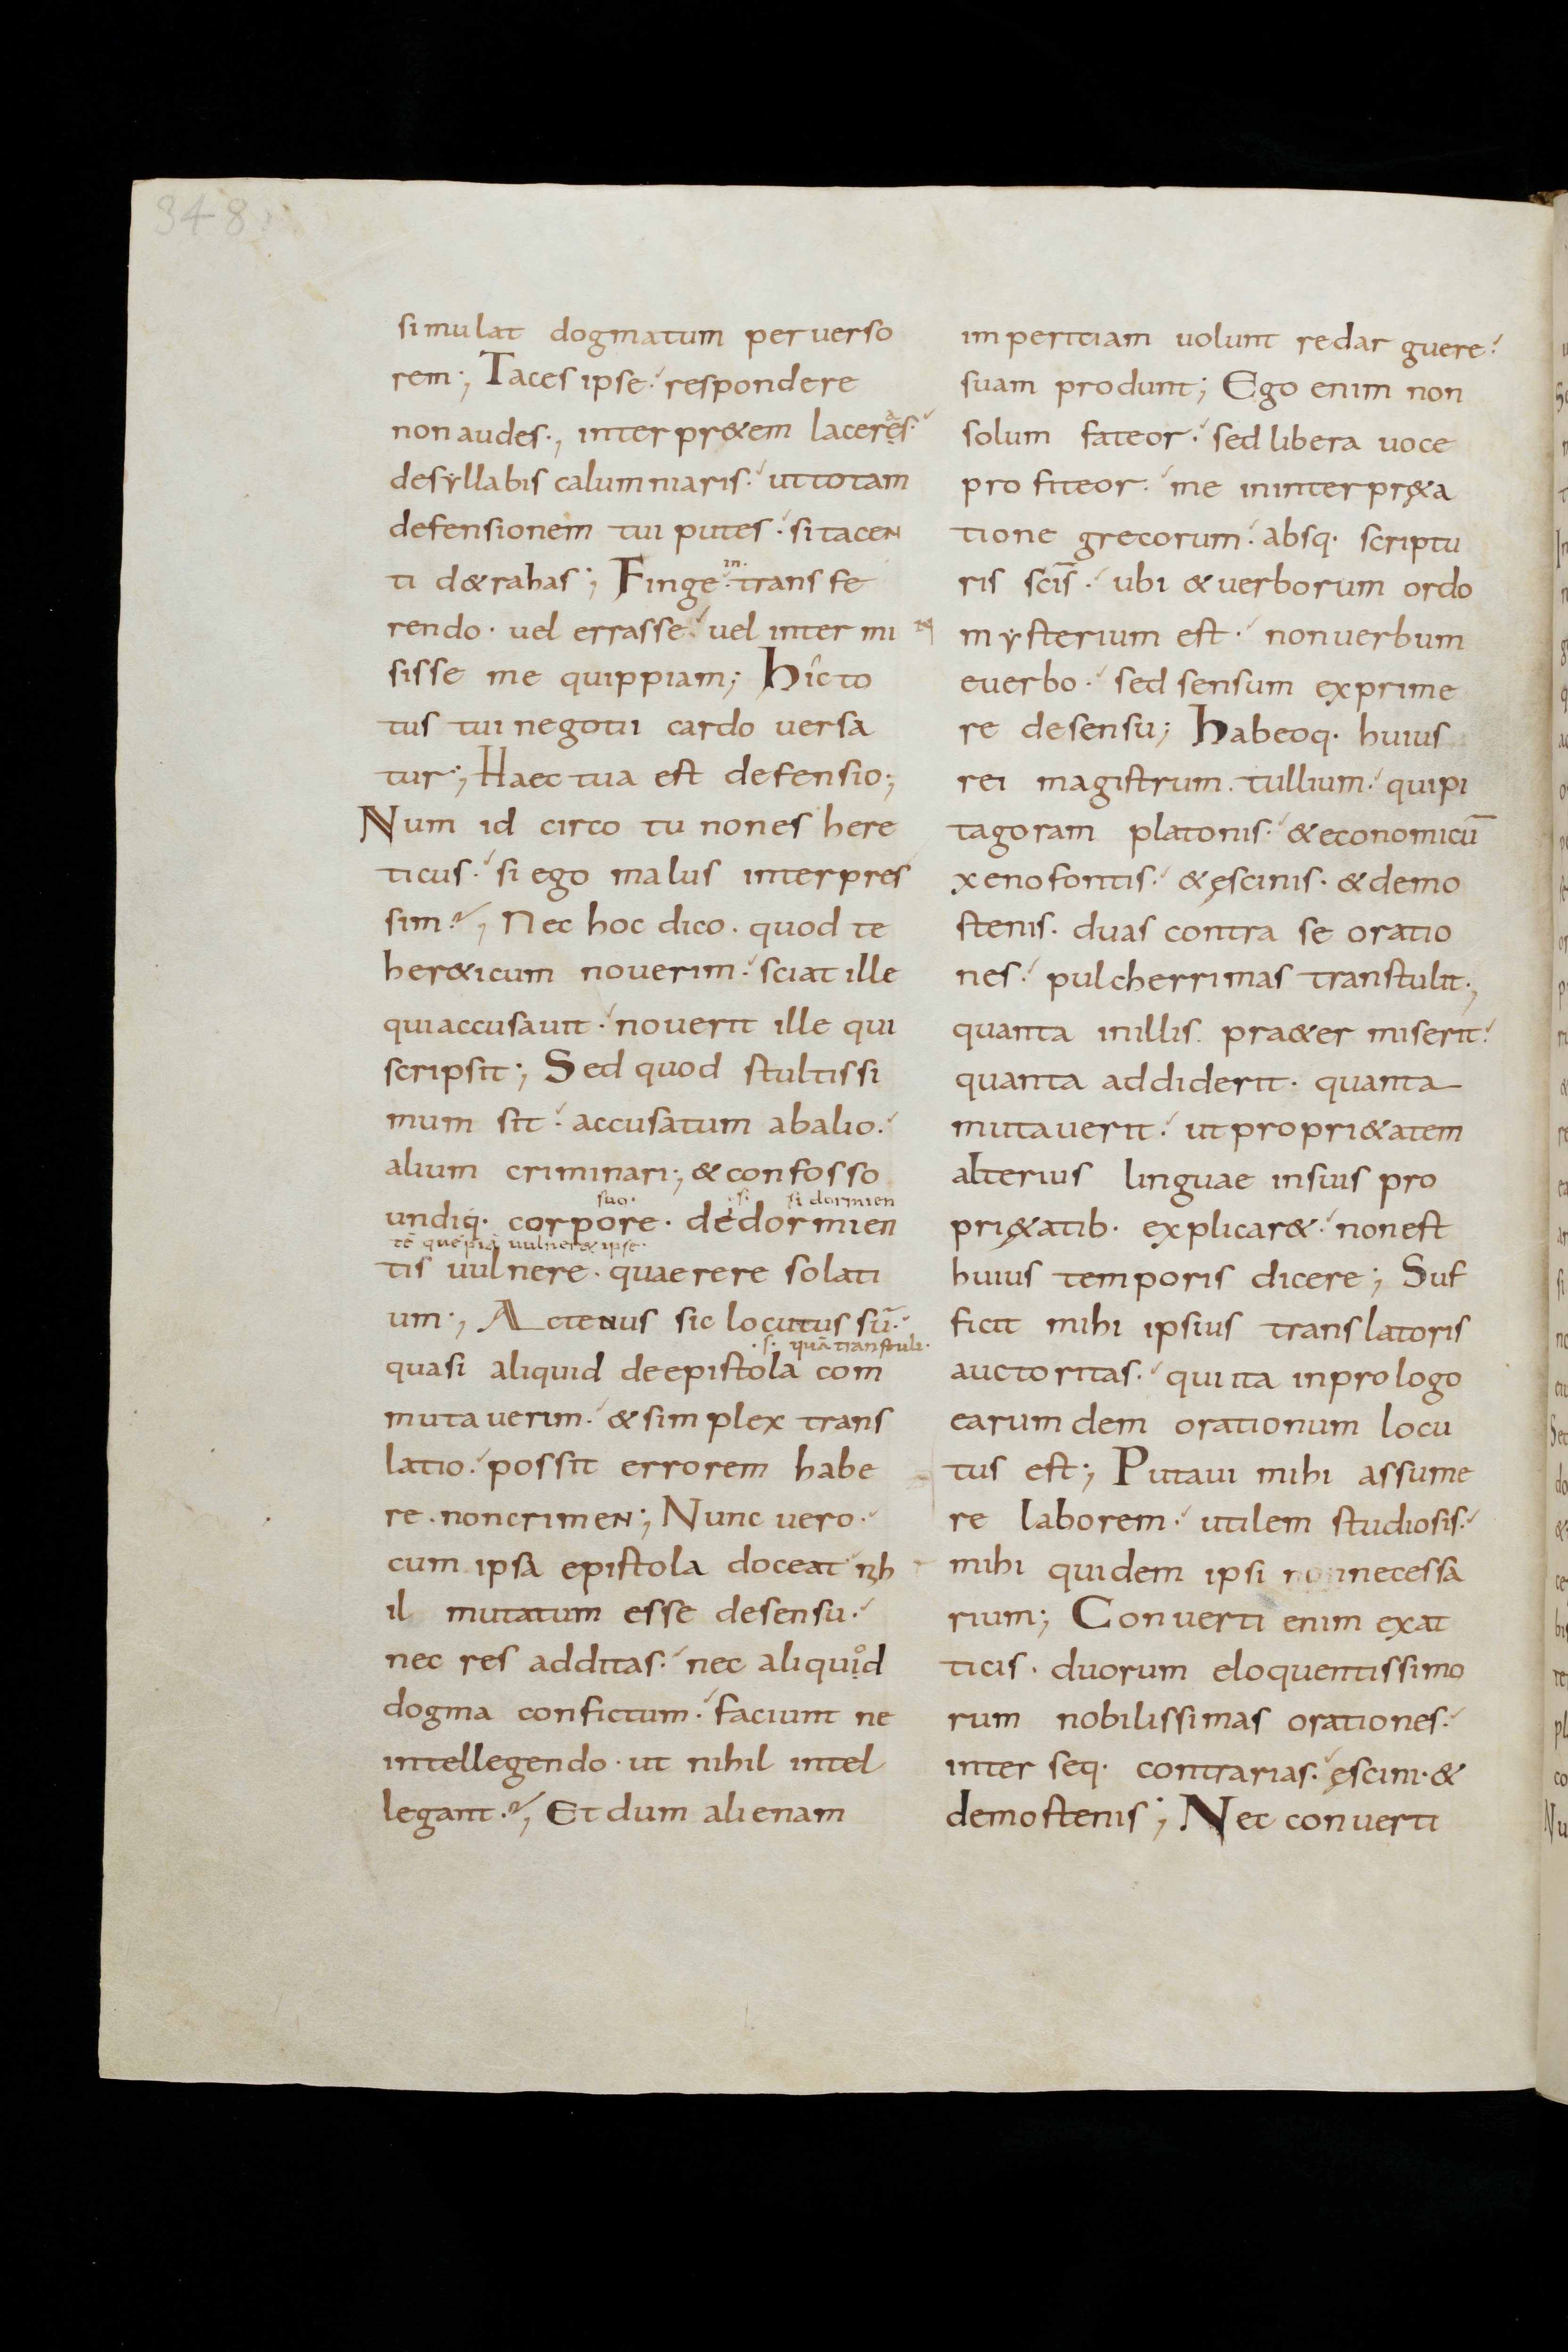 348
simulat dogmatum perverso
rem; Taces ipse. respondere
non audes., interpr&em laceręs.
a
desyllabis calumniaris. ut totam
defensionem tui putes. si tacen
ti d&rahas; Finge. transfe
in.
rendo. vel errasse. vel intermi
sisse me quippiam; hîc to
tus tui negotii cardo versa
tur; Haec tua est defensio;
Num id circo tu non es here
ticus. si ego malus interpres
sim.; Nec hoc dico. quod te
her&icum noverim. sciat ille
qui accusavit. noverit ille qui
scripsit; Sed quod stultissi
mum sit. accusatum ab alio.
alium criminari; & confosso
suo. .s. si dormien
undiq. corpore. de dormien
tē quēpiā vulner& ipse.
tis vulnere. quaerere solati
um; Actenus sic locutus sū.
.s. quā transtuli.
quasi aliquid de epistola com
mutaverim. & simplex trans
latio. possit errorem habe
re. non crimen; Nunc vero.
cum ipsa epistola doceat nih
il mutatum esse de sensu.
nec res additas. nec aliquid
o
dogma confictum. faciunt ne
intellegendo. ut nihil intel
legant.; Et dum alienam
imperitiam volunt redarguere.
suam produnt; Ego enim non
solum fateor. sed libera voce
profiteor. me in interpr&a
tione grecorum. absq. scriptu
ris scīs. ubi & verborum ordo
mysterium est. non verbum
e verbo. sed sensum exprime
re de sensu; habeoq. huius
rei magistrum. tullium. qui pi
tagoram platonis. & economicū
xenofontis. & ęscinis. & demo
stenis. duas contra se oratio
nes. pulcherrimas transtulit.,
quanta in illis. pra&er miserit.
quanta addiderit. quanta
mutaverit. ut propri&atem
alterius linguae in suis pro
pri&atib. explicar&. non est
huius temporis dicere; Suf
ficit mihi ipsius translatoris
auctoritas. qui ita in prologo
earumdem orationum locu
tus est; Putavi mihi assume
re laborem. utilem studiosis.
mihi quidem ipsi non necessa
rium; Converti enim ex at
ticis. duorum eloquentissimo
rum nobilissimas orationes.
inter seq. contrarias. ęscini. &
demostenis; Nec converti